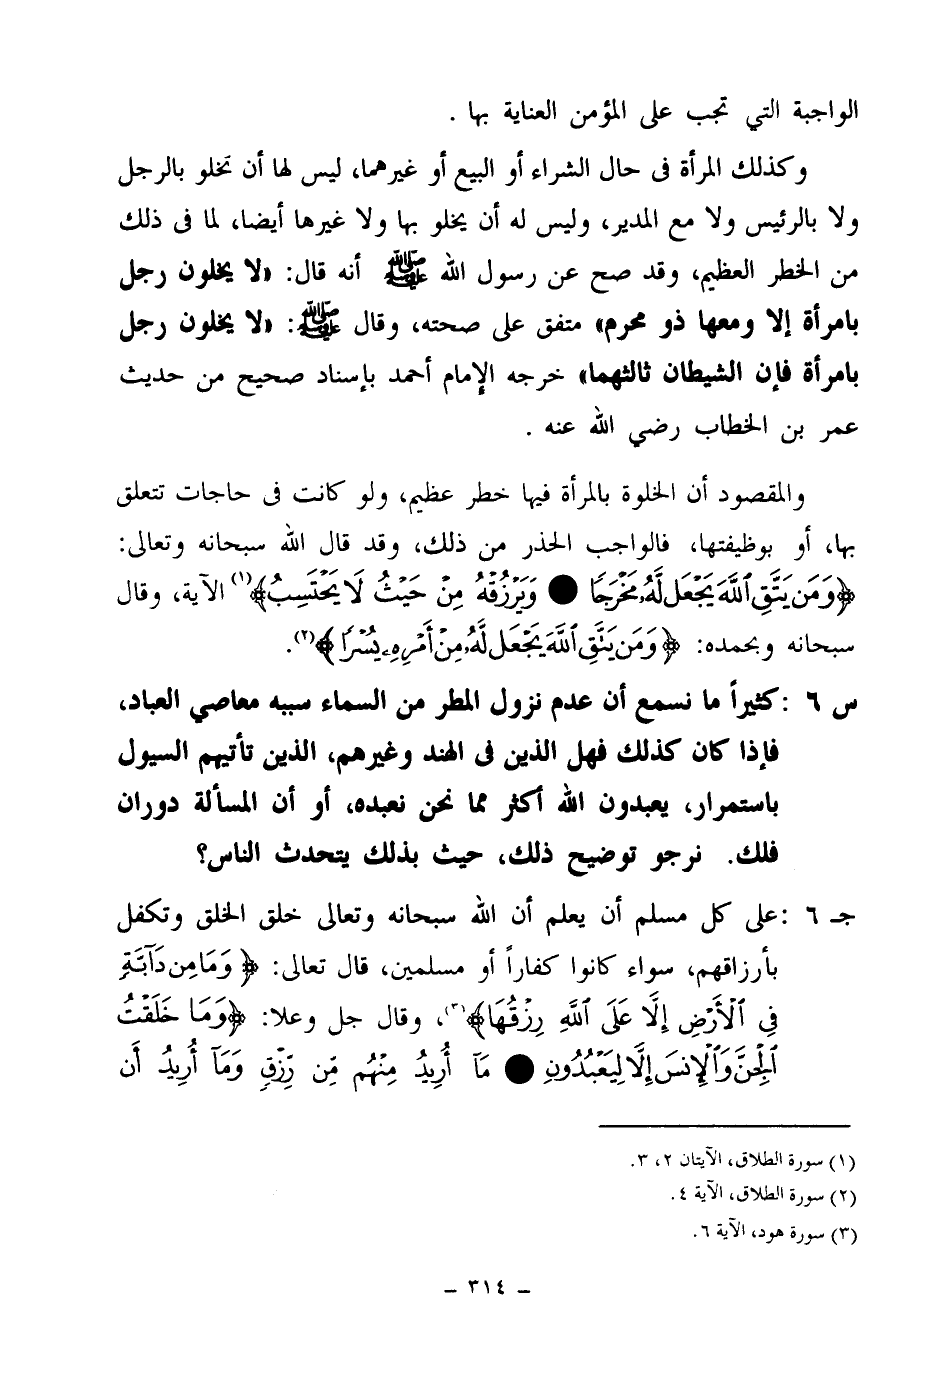 الواجبة التي تجب على المؤمن العناية بها .
وكذلك المرأة فى حال الشراء أو البيع أو غيرهما، ليس لها أن تخلو بالرجل
ولا بالرئيس ولا مع المدير، وليس له أن يخلو بها ولا غيرها أيضا، لما فى ذلك
من الخطر العظيم، وقد صح عن رسول الله ﷺ أنه قال: «لا يخلون رجل
بامرأة إلا ومعها ذو محرم» متفق على صحته، وقال ﷺ: «لا يخلون رجل
بامرأة فإن الشيطان ثالثهما» خرجه الإمام أحمد بإسناد صحيح من حديث
عمر بن الخطاب رضي الله عنه .
والمقصود أن الخلوة بالمرأة فيها خطر عظيم، ولو كانت فى حاجات تتعلق
بها، أو بوظيفتها، فالواجب الحذر من ذلك، وقد قال الله سبحانه وتعالى:
﴿وَمَن يَتَّقِ ٱللَّهَ يَجْعَل لَّهُۥ مَخْرَجًا ● وَيَرْزُقْهُ مِنْ حَيْثُ لَا يَحْتَسِبُ﴾(١) الآية، وقال
سبحانه وبحمده: ﴿وَمَن يَتَّقِ ٱللَّهَ يَجْعَل لَّهُۥ مِنْ أَمْرِهِۦ يُسْرًا﴾(٢).
س ٦ : كثيراً ما نسمع أن عدم نزول المطر من السماء سببه معاصي العباد،
فإذا كان كذلك فهل الذين فى الهند وغيرهم، الذين تأتيهم السيول
باستمرار، يعبدون الله أكثر مما نحن نعبده، أو أن المسألة دوران
فلك. نرجو توضيح ذلك، حيث بذلك يتحدث الناس؟
جـ ٦ : على كل مسلم أن يعلم أن الله سبحانه وتعالى خلق الخلق وتكفل
بأرزاقهم، سواء كانوا كفاراً أو مسلمين، قال تعالى: ﴿وَمَا مِن دَآبَّةٍ
فِي ٱلْأَرْضِ إِلَّا عَلَى ٱللَّهِ رِزْقُهَا﴾(٣)، وقال جل وعلا: ﴿وَمَا خَلَقْتُ
ٱلْجِنَّ وَٱلْإِنسَ إِلَّا لِيَعْبُدُونِ ● مَآ أُرِيدُ مِنْهُم مِّن رِّزْقٍ وَمَآ أُرِيدُ أَن
(١) سورة الطلاق، الآيتان ٢، ٣.
(٢) سورة الطلاق، الآية ٤.
(٣) سورة هود، الآية ٦.
– ٣١٤ –